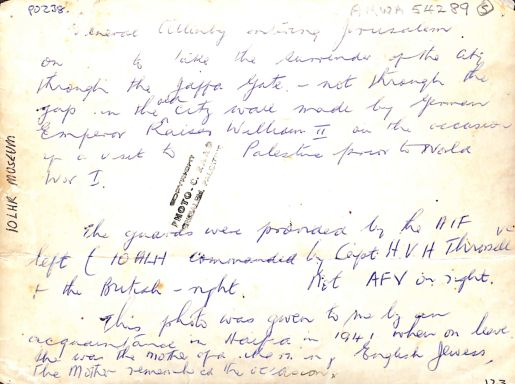 P0238.
AMWA 54289 (5)
General Allenby entering Jerusalem.
on to take the surrender of the city
through the Jaffa Gate. - not through the
gap in the old city wall made by German
Emperor Kaiser William II on the occasion
of a visit to Palestine prior to World
War I.
10LHR MUSEUM
COPYRIGHT
PHOTO. C.
The guards were provided by the AIF
left ( 10 ALH commanded by Capt. H V H Throssell
+ the British - right. AFV on right.
This photo was given to me by an
acquaintance in Haifa in 1941 when on leave
She was the mother of a English Jewess,
The Mother remembered the occasion.
123